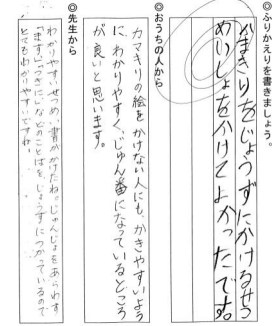 ◎ふりかえりを書きましょう。
かまきりをじょうずにかけるせつ
めいしょをかけてよかったです。
◎おうちの人から
カマキリの絵をかけない人にも、かきやすいよう
に、わかりやすく、じゅん番になっているところ
が良いと思います。
◎先生から
わかりやすいせつめい書がかけたね。じゅんじょをあらわす
「まず」「つぎに」などのことばを、じょうずにつかっているので
とてもわかりやすいですね。